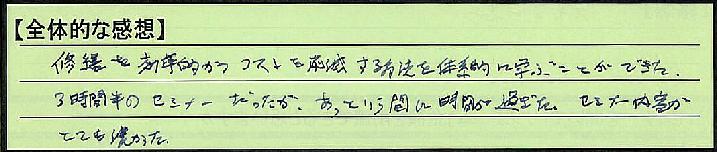 【全体的な感想】
修繕を効率的かつコストを削減する方法を体系的に学ぶことができた。
3時間半のセミナーだったが、あっという間に時間が過ぎた。セミナー内容が
とても濃かった。